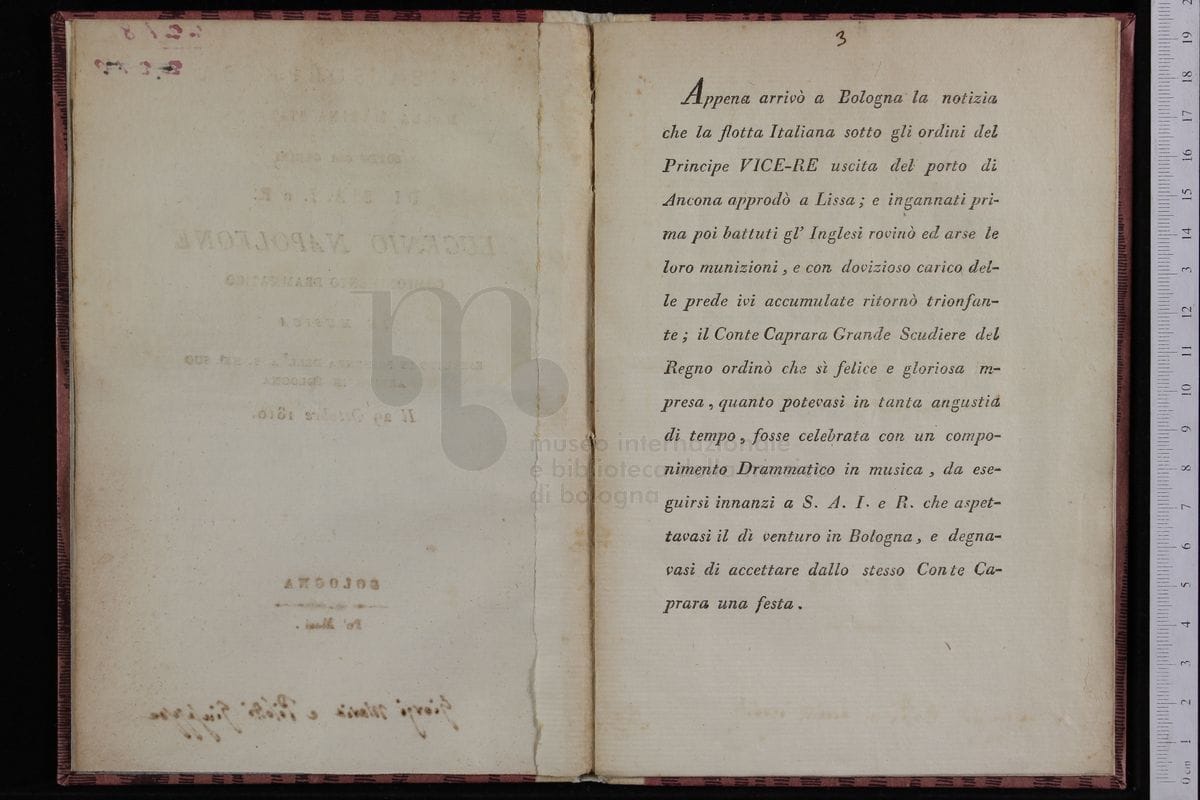 3
Appena arrivò a Bologna la notizia
che la flotta Italiana sotto gli ordini del
Principe VICE-RE uscita del porto di
Ancona approdò a Lissa; e ingannati pri-
ma poi battuti gl' Inglesi rovinò ed arse le
loro munizioni, e con dovizioso carico del-
le prede ivi accumulate ritornò trionfan-
te; il Conte Caprara Grande Scudiere del
Regno ordinò che sì felice e gloriosa m-
presa, quanto potevasi in tanta angustia
di tempo, fosse celebrata con un compo-
nimento Drammatico in musica, da ese-
guirsi innanzi a S. A. I. e R. che aspet-
tavasi il dì venturo in Bologna, e degna-
vasi di accettare dallo stesso Conte Ca-
prara una festa.
EUGENIO NAPOLEONE
COMPONIMENTO DRAMMATICO
Il 29 Ottobre 1810.
BOLOGNA
museo internazionale
e biblioteca della musica
di bologna
0 cm 1 2 3 4 5 6 7 8 9 10 11 12 3 14 15 16 17 18 19 2